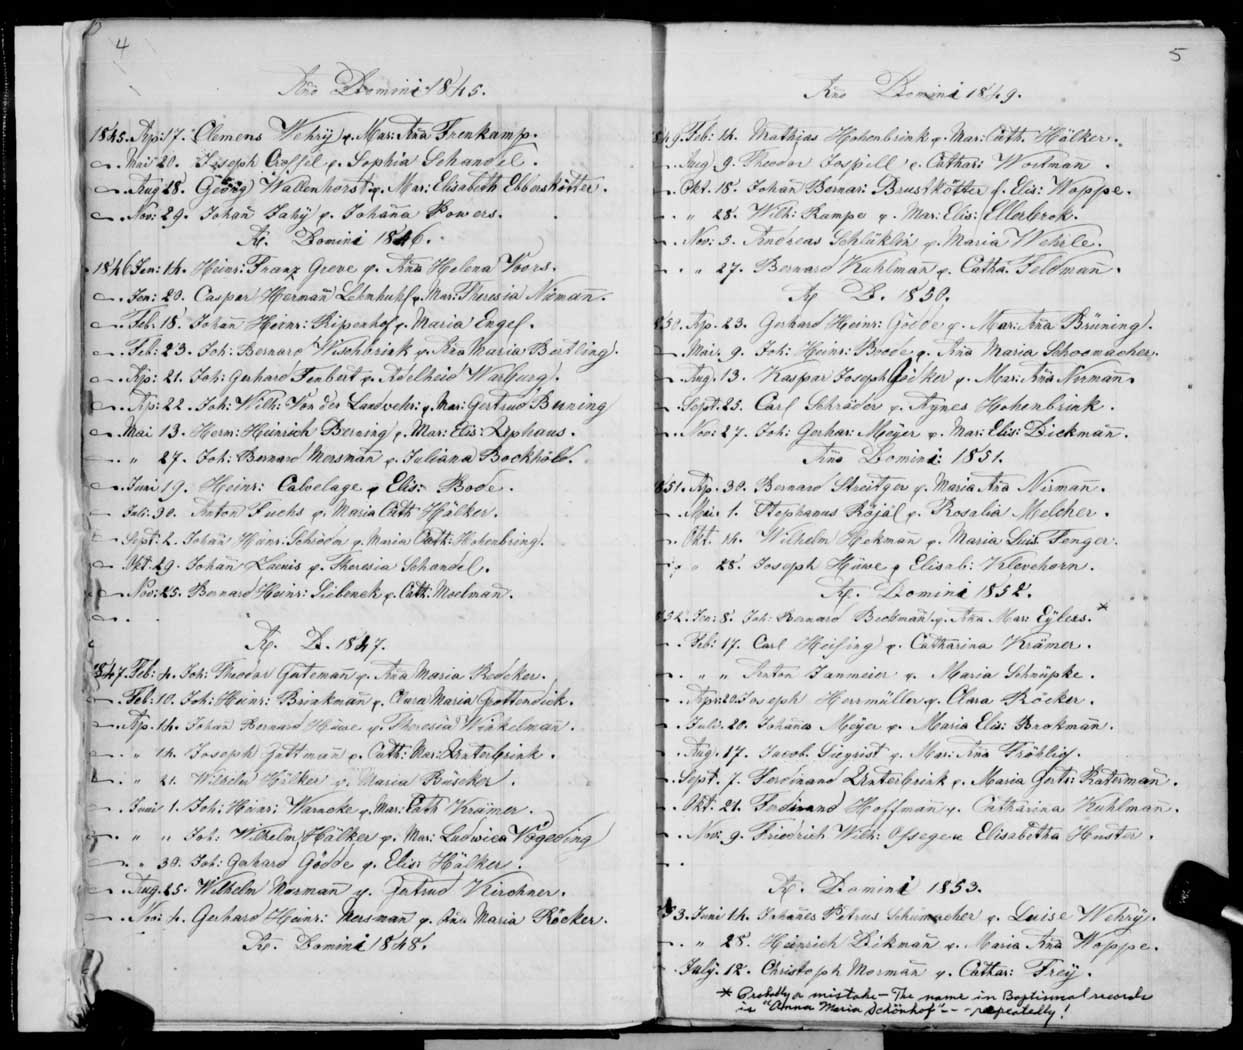 4
Año Domini 1845.
1845. Ap: 17. Clemens Wehrÿ & Mar: Aña Frenkamp.
" Mai 20. Joseph Croffil & Sophia Schandel.
" Aug 18. Georg Wallenhorst & Mar: Elisabeth Ebberskötter.
" Nov: 29. Johañ Jahÿ & Johaña Powers.
A. Domini 1846.
1846 Jen: 14. Heinr: Franz Greve & Aña Helena Voors.
" Jen: 20. Caspar Hermañ Lehmkuhl & Mar: Theresia Niemañ.
" Feb: 18. Johañ Heinr: Ripenhof & Maria Engel.
" Feb: 23. Joh: Bernard Wischbrink & Aña Maria Bertling.
" Ap: 21. Joh: Gerhard Tenbert & Adelheid Warburg.
" Ap: 22. Joh: Wilh: Von der Landwehr: & Mar: Gertrud Beuning
" Mai 13. Herm: Heinrich Berning & Mar: Elis: Uphaus.
" " 27. Joh: Bernard Mersmañ & Juliana Bockhold.
" Juni 9. Heinr: Calvelage & Elis: Bode.
" Juli: 30. Anton Fuchs & Maria Cath Hälker.
" Sept: 2. Johañ Heinr: Schröder & Maria Cath: Hohenbring.
" Okt. 29. Johañ Laeuis & Theresia Schandel.
" Nov: 25. Bernard Heinr: Liebenek & Cath: Moelmañ.
A. D. 1847.
1847. Feb: 4. Joh: Theodor Gutemañ & Aña Maria Redeker.
" Feb: 10. Joh: Heinr: Brinkmañ & Clara Maria Grottendick.
" Ap. 14. Johañ Bernard Hüwe & Theresia Winkelmañ.
" " 14. Joseph Guttmañ & Cath: Mar: Unterbrink.
" " 21. Wilhelm Hälker & Maria Büscker.
" Juni 1. Joh: Heinr: Warneke & Mar: Cath Krämer.
" " " Joh: Wilhelm Hälker & Mar: Ludwica Vogeding
" " 30. Joh: Gerhard Gödde & Elis: Hälker.
" Aug. 25. Wilhelm Morman & Gertrud Kirchner.
" Nov: 4. Gerhard Heinr: Mersman & Aña Maria Röcker.
A. Domini 1848.
5
Año Domini 1849.
1849. Feb: 14. Mathias Hohenbrink & Mar: Cath. Hälker.
" Aug 9. Theodor Jospill & Cathar: Woitman.
" Okt. 18. Johañ Bernar: Brustkötter & Elis: Woppe.
" " 28. Wilh: Kampe & Mar: Elis: Ellerbrok.
" Nov: 5. Andreas Schlüklin & Maria Wehrle.
" " 27. Bernard Kuhlmañ & Catha: Feldmañ.
A. D. 1850.
1850. Ap. 23. Gerhard Heinr: Gödde & Mar: Aña Brüning.
" Mai. 9. Joh: Heinr: Bode & Aña Maria Schoomacher.
" Aug. 13. Kaspar Joseph Göcker & Mar: Aña Nirmañ.
" Sept. 25. Carl Schröder & Agnes Hohenbrink.
" Nov: 27. Joh: Gerhar: Meÿer & Mar: Elis: Dickmañ.
Año Domini 1851.
1851. Ap. 30. Bernard Streitger & Maria Aña Nirmañ.
" Mai. 1. Stephanus Röjäl & Rosalia Melcher.
" Okt. 14. Wilhelm Hekman & Maria Luis Fenger.
" " 28. Joseph Hüwe & Elisab: Klevehorn.
A. Domini 1852.
1852. Jen: 8. Joh: Bernard Beckmañ & Aña Mar: Eÿlers. *
" Feb: 17. Carl Heising & Catharina Krämer.
" " " Anton Janmeier & Maria Schnüpke.
" Apr: 20. Joseph Herrmüller & Clara Röcker.
" Juli. 20. Johañes Meÿer & Maria Elis: Brokmañ.
" Aug. 17. Jacob Siegrist & Mar: Aña Fröhlig.
" Sept. 7. Ferdinand Unterbrink & Maria Gert: Katerman.
" Okt. 21. Ferdinand Hoffmañ & Catharina Kuhlman.
" Nov: 9. Friedrich Wilh: Ossege & Elisabetha Huster.
A. Domini 1853.
1853. Juni 14. Johañes Petrus Schumacher & Luise Wehrÿ.
" " 28. Heinrich Dikmañ & Maria Aña Woppe.
" July. 12. Christoph Mormañ & Cathar: Freÿ.
* Probably a mistake – The name in Baptismal records
is "Anna Maria Schönhof" - - - repeatedly!